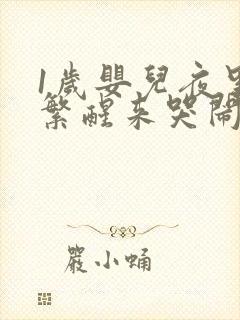 1歲嬰兒夜
繁醒來哭鬧
嚴小蛹